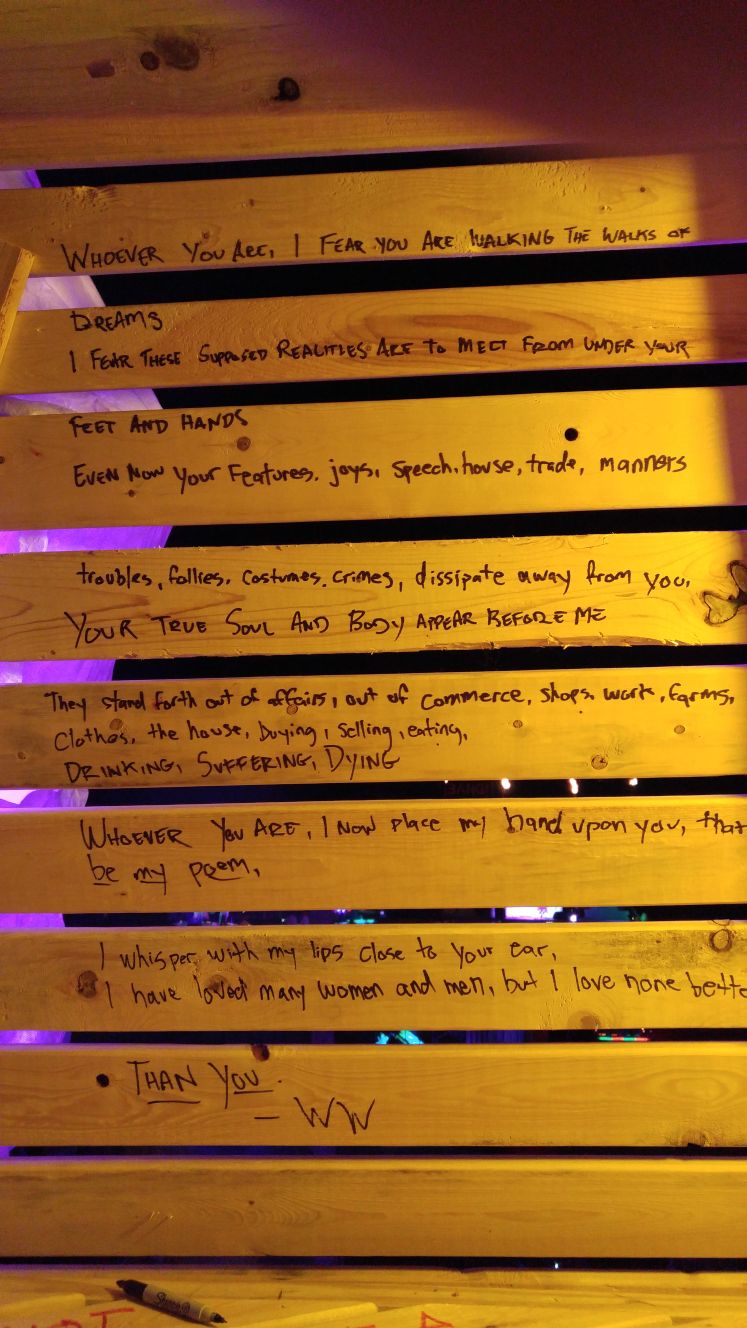 WHOEVER YOU ARE, I FEAR YOU ARE WALKING THE WALKS OF
DREAMS
I FEAR THESE SUPPOSED REALITIES ARE TO MELT FROM UNDER YOUR
FEET AND HANDS
EVEN NOW your Features, joys, speech, house, trade, manners
troubles, follies, costumes, crimes, dissipate away from you,
YOUR TRUE SOUL AND BODY APPEAR BEFORE ME
They stand forth out of affairs, out of commerce, shops, work, farms,
Clothes, the house, buying, selling, eating,
DRINKING, SUFFERING, DYING
WHOEVER YOU ARE, I NOW place my hand upon you, that
be my poem,
I whisper with my lips close to your ear,
I have loved many women and men, but I love none bette
THAN YOU.
— WW
Sharpie